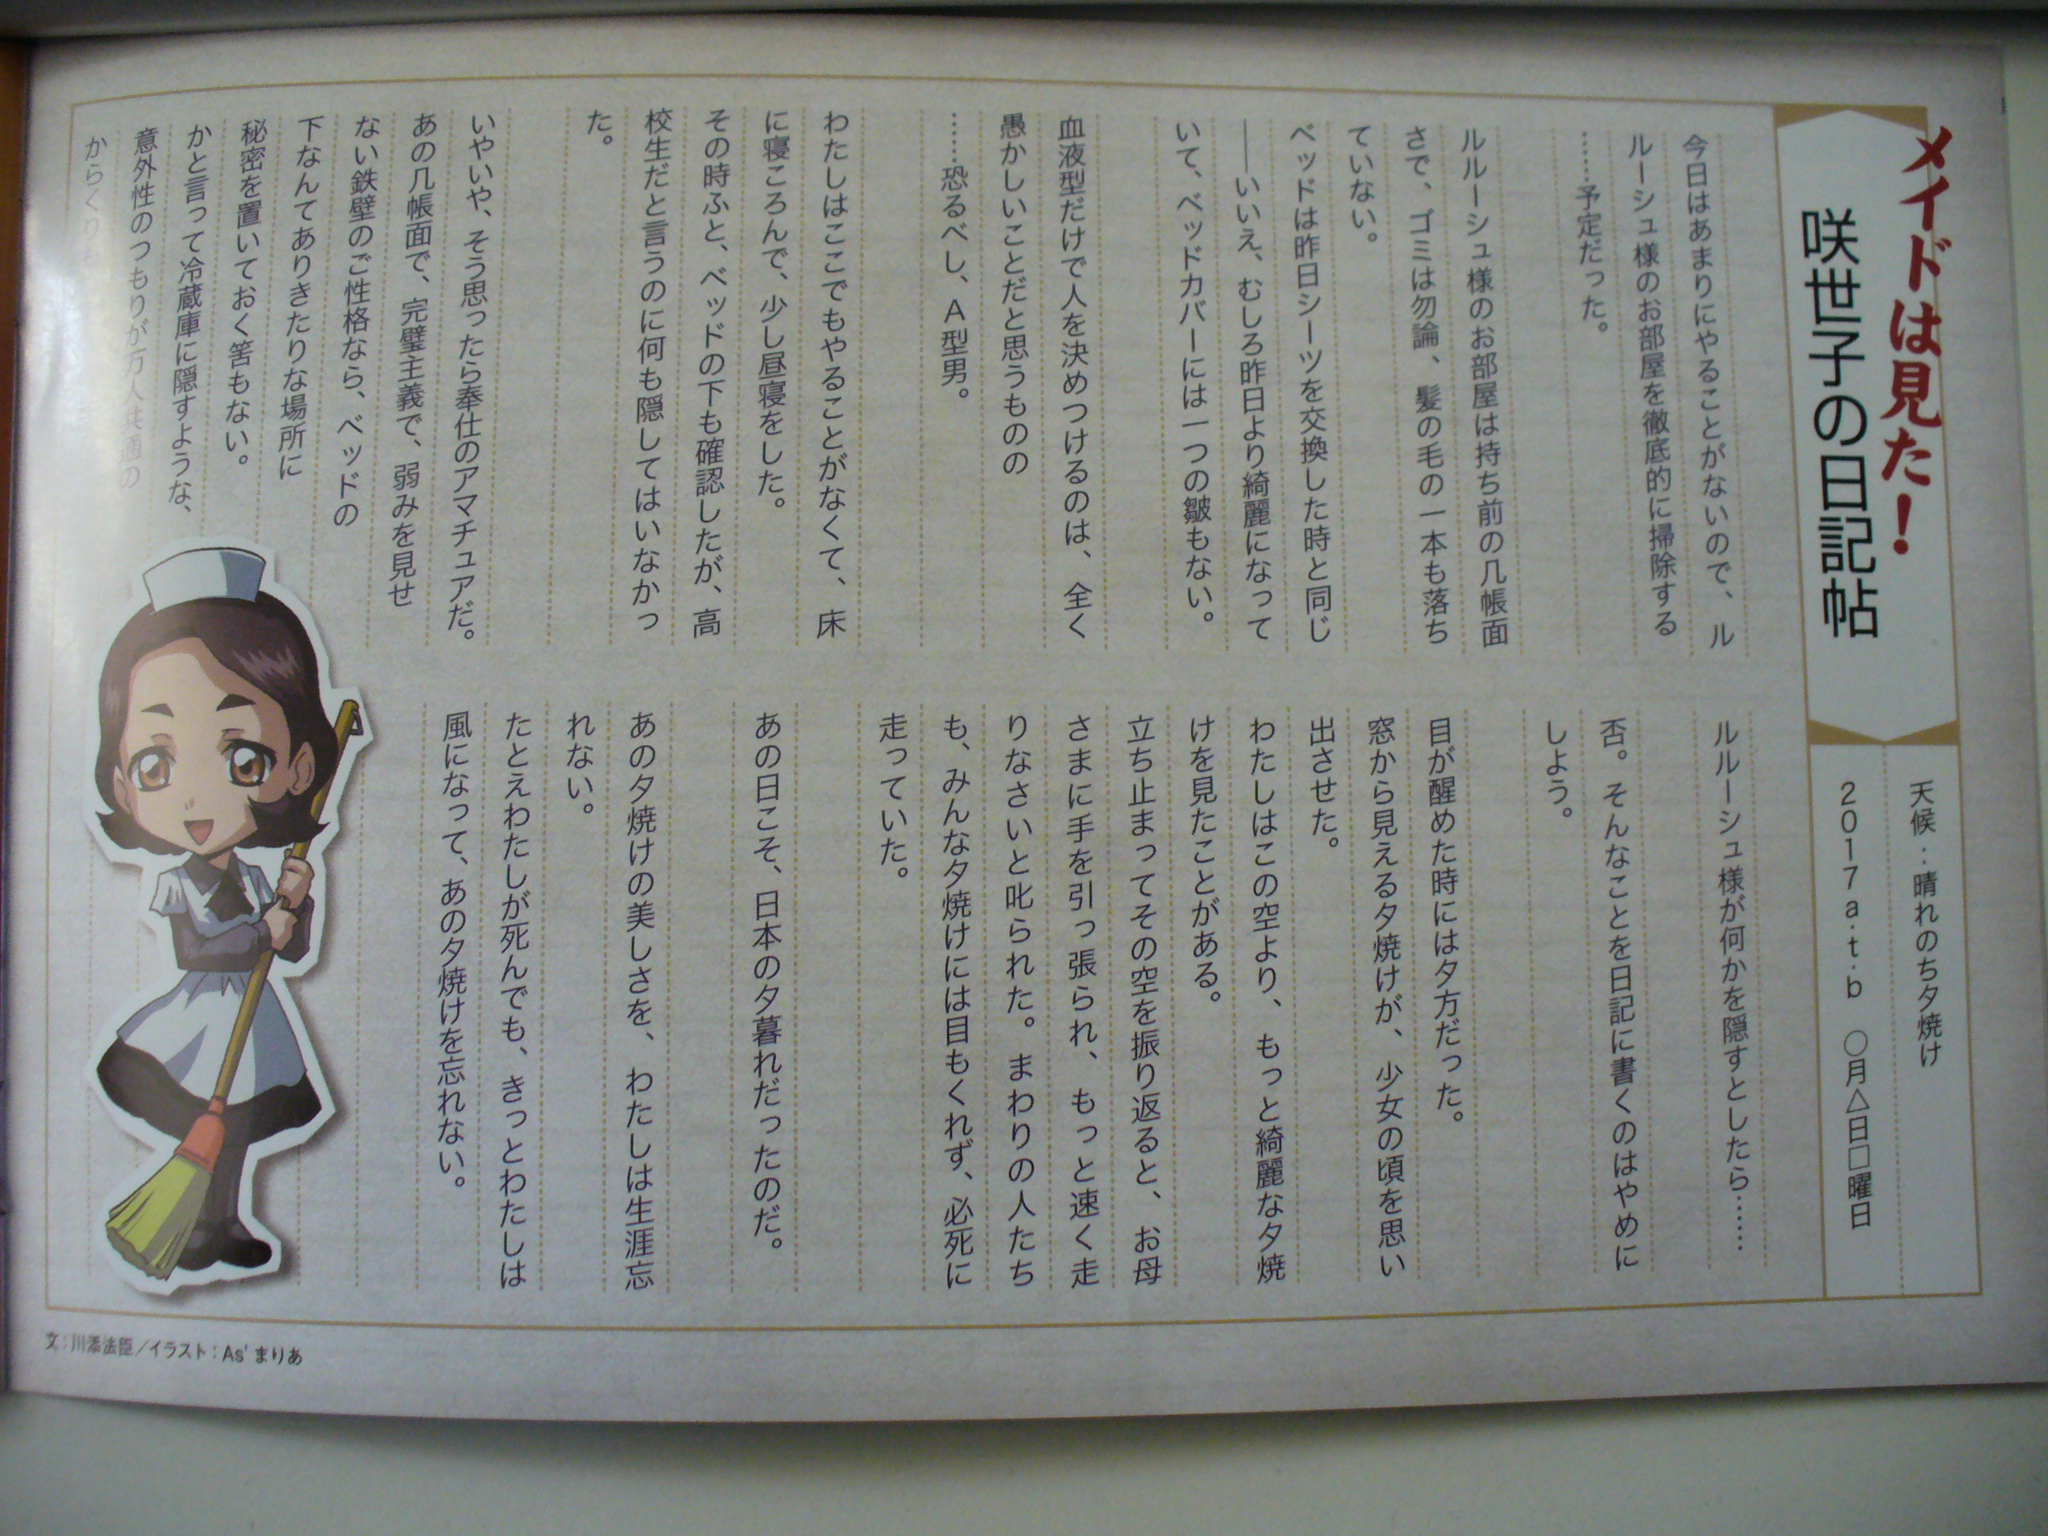 メイドは見た！
咲世子の日記帖
天候：晴れのち夕焼け
2017a.t.b　○月△日□曜日
今日はあまりにやることがないので、ル
ルーシュ様のお部屋を徹底的に掃除する
……予定だった。
ルルーシュ様のお部屋は持ち前の几帳面
さで、ゴミは勿論、髪の毛の一本も落ち
ていない。
ベッドは昨日シーツを交換した時と同じ
――いいえ、むしろ昨日より綺麗になって
いて、ベッドカバーには一つの皺もない。
血液型だけで人を決めつけるのは、全く
愚かしいことだと思うものの
……恐るべし、A型男。
わたしはここでもやることがなくて、床
に寝ころんで、少し昼寝をした。
その時ふと、ベッドの下も確認したが、高
校生だと言うのに何も隠してはいなかっ
た。
いやいや、そう思ったら奉仕のアマチュアだ。
あの几帳面で、完璧主義で、弱みを見せ
ない鉄壁のご性格なら、ベッドの
下なんてありきたりな場所に
秘密を置いておく筈もない。
かと言って冷蔵庫に隠すような、
意外性のつもりが万人共通の
からくりも
ルルーシュ様が何かを隠すとしたら……
否。そんなことを日記に書くのはやめに
しよう。
目が醒めた時には夕方だった。
窓から見える夕焼けが、少女の頃を思い
出させた。
わたしはこの空より、もっと綺麗な夕焼
けを見たことがある。
立ち止まってその空を振り返ると、お母
さまに手を引っ張られ、もっと速く走
りなさいと叱られた。まわりの人たち
も、みんな夕焼けには目もくれず、必死に
走っていた。
あの日こそ、日本の夕暮れだったのだ。
あの夕焼けの美しさを、わたしは生涯忘
れない。
たとえわたしが死んでも、きっとわたしは
風になって、あの夕焼けを忘れない。
文：川添法臣／イラスト：As'まりあ